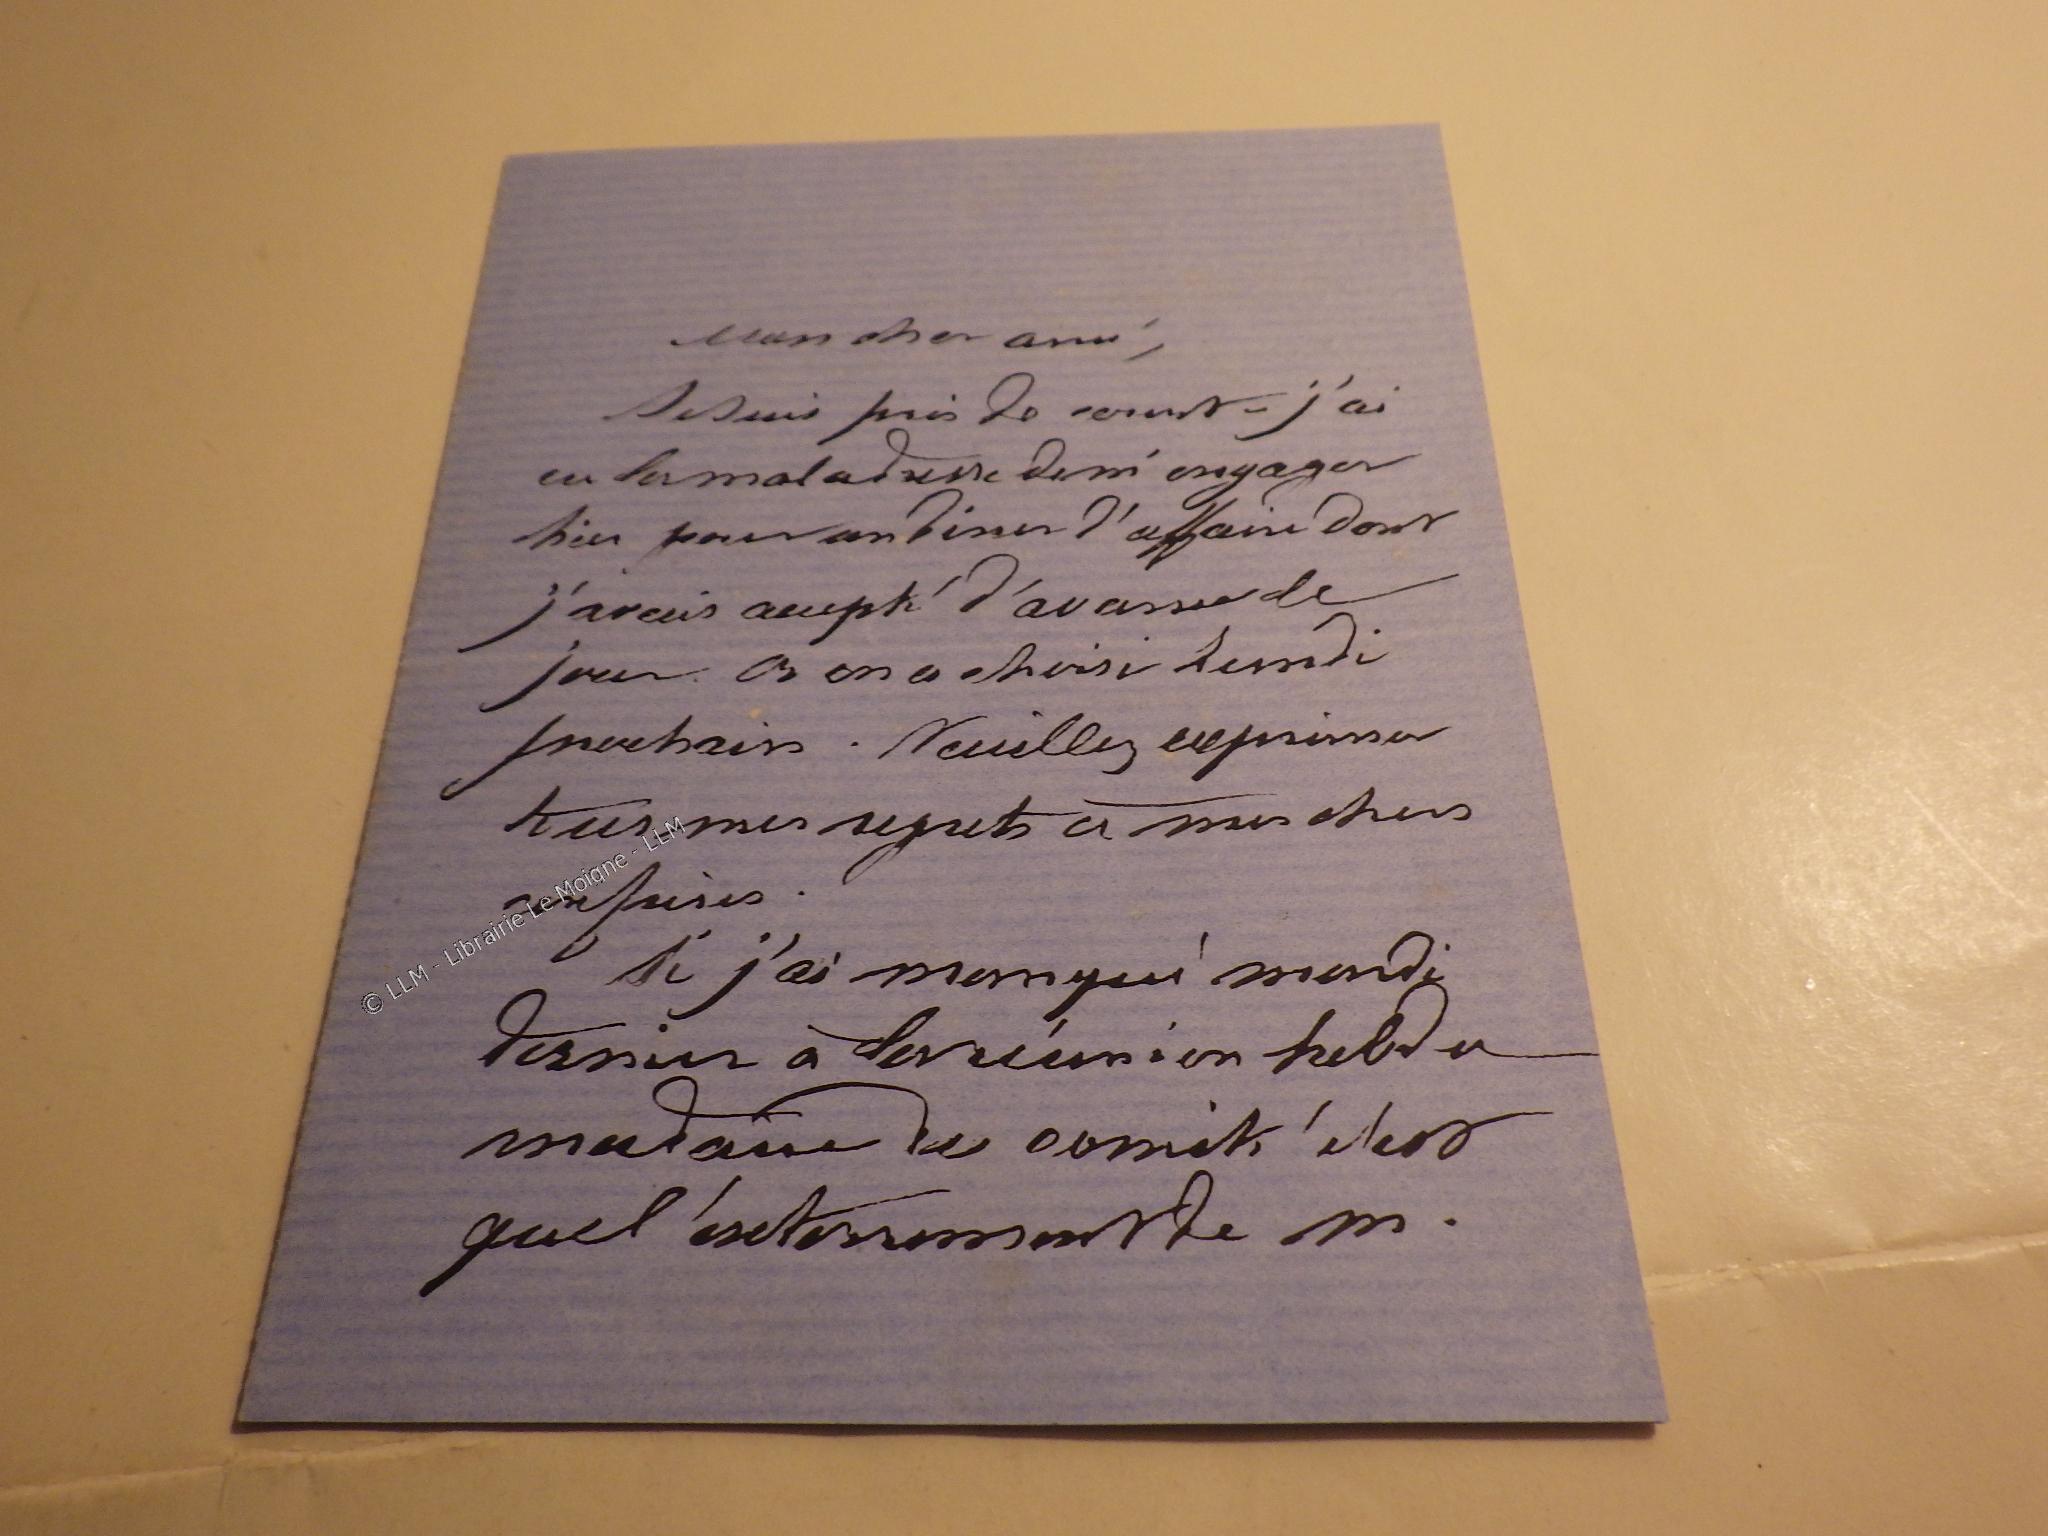 Mon cher ami,
Je suis pris de court - j'ai
eu la maladresse de m'engager
hier pour un diner d'affaire dont
j'avais accepté d'avance le
jour. Or on a choisi Lundi
prochain. Veuillez exprimer
tous mes regrets à mes chers
confrères.
Si j'ai manqué mardi
dernier à la réunion hebdo
madaire du comité c'est
que l'enterrement de M.
© LLM - Librairie Le Moigne - LLM